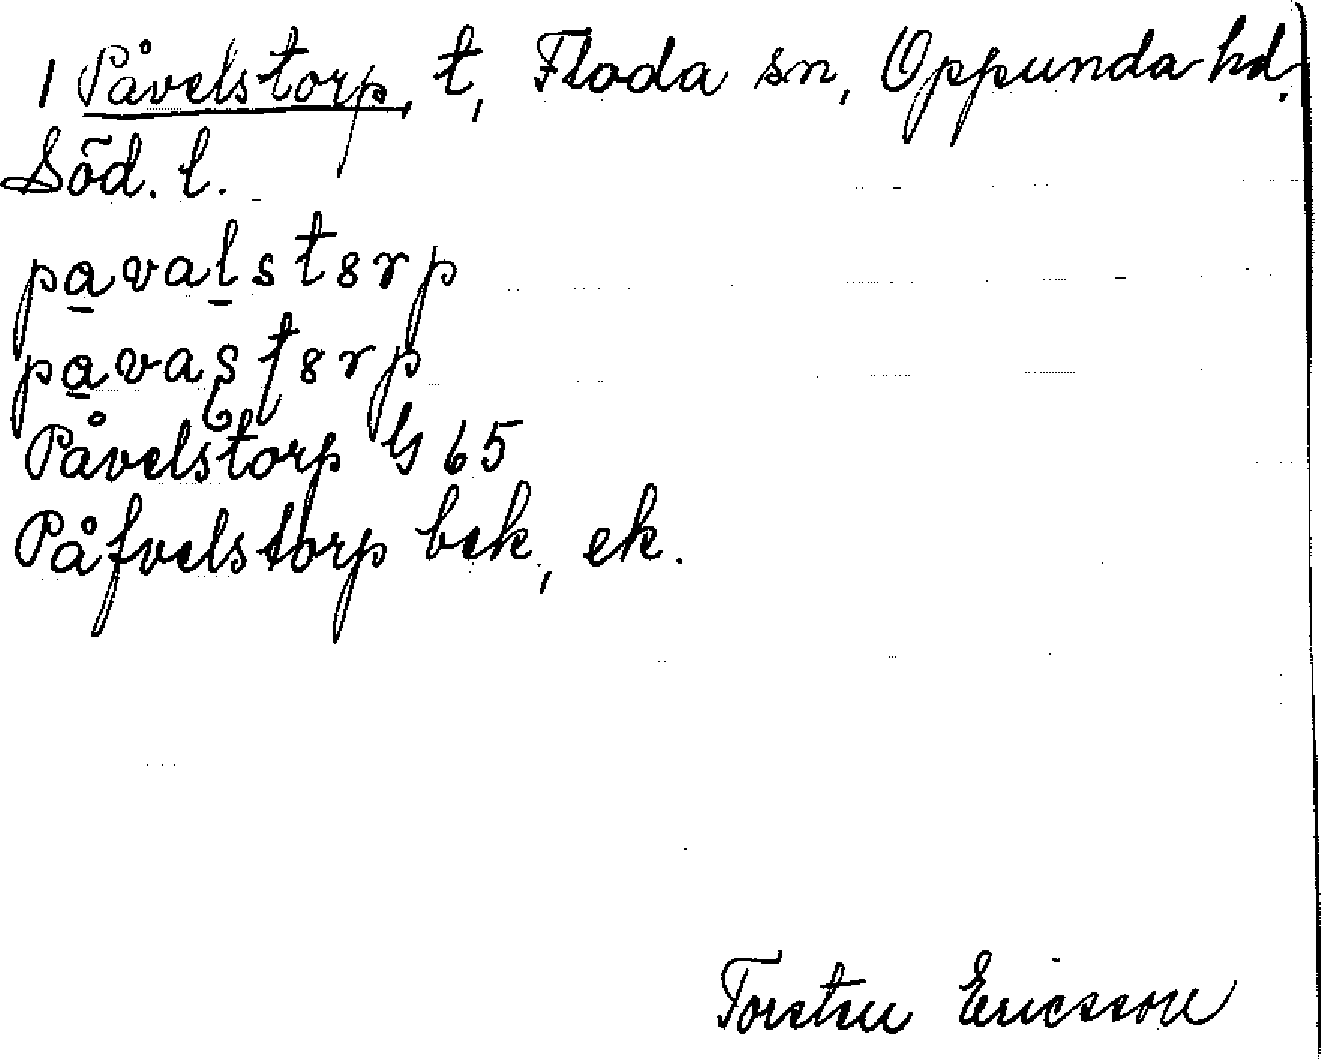 1 Påvelstorp, t, Floda sn, Oppunda hd,
Söd. l.
pa̲val̲st8rp
pa̲vaʂʈ8rp
Påvelstorp G 65
Påfvelstorp bek, ek.
Torsten Ericsson